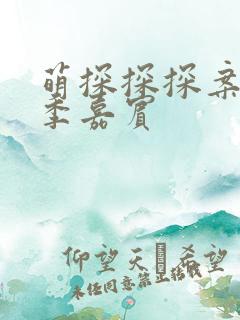 萌探探探案
季嘉宾
仰望天 希望
未任同意禁止转载